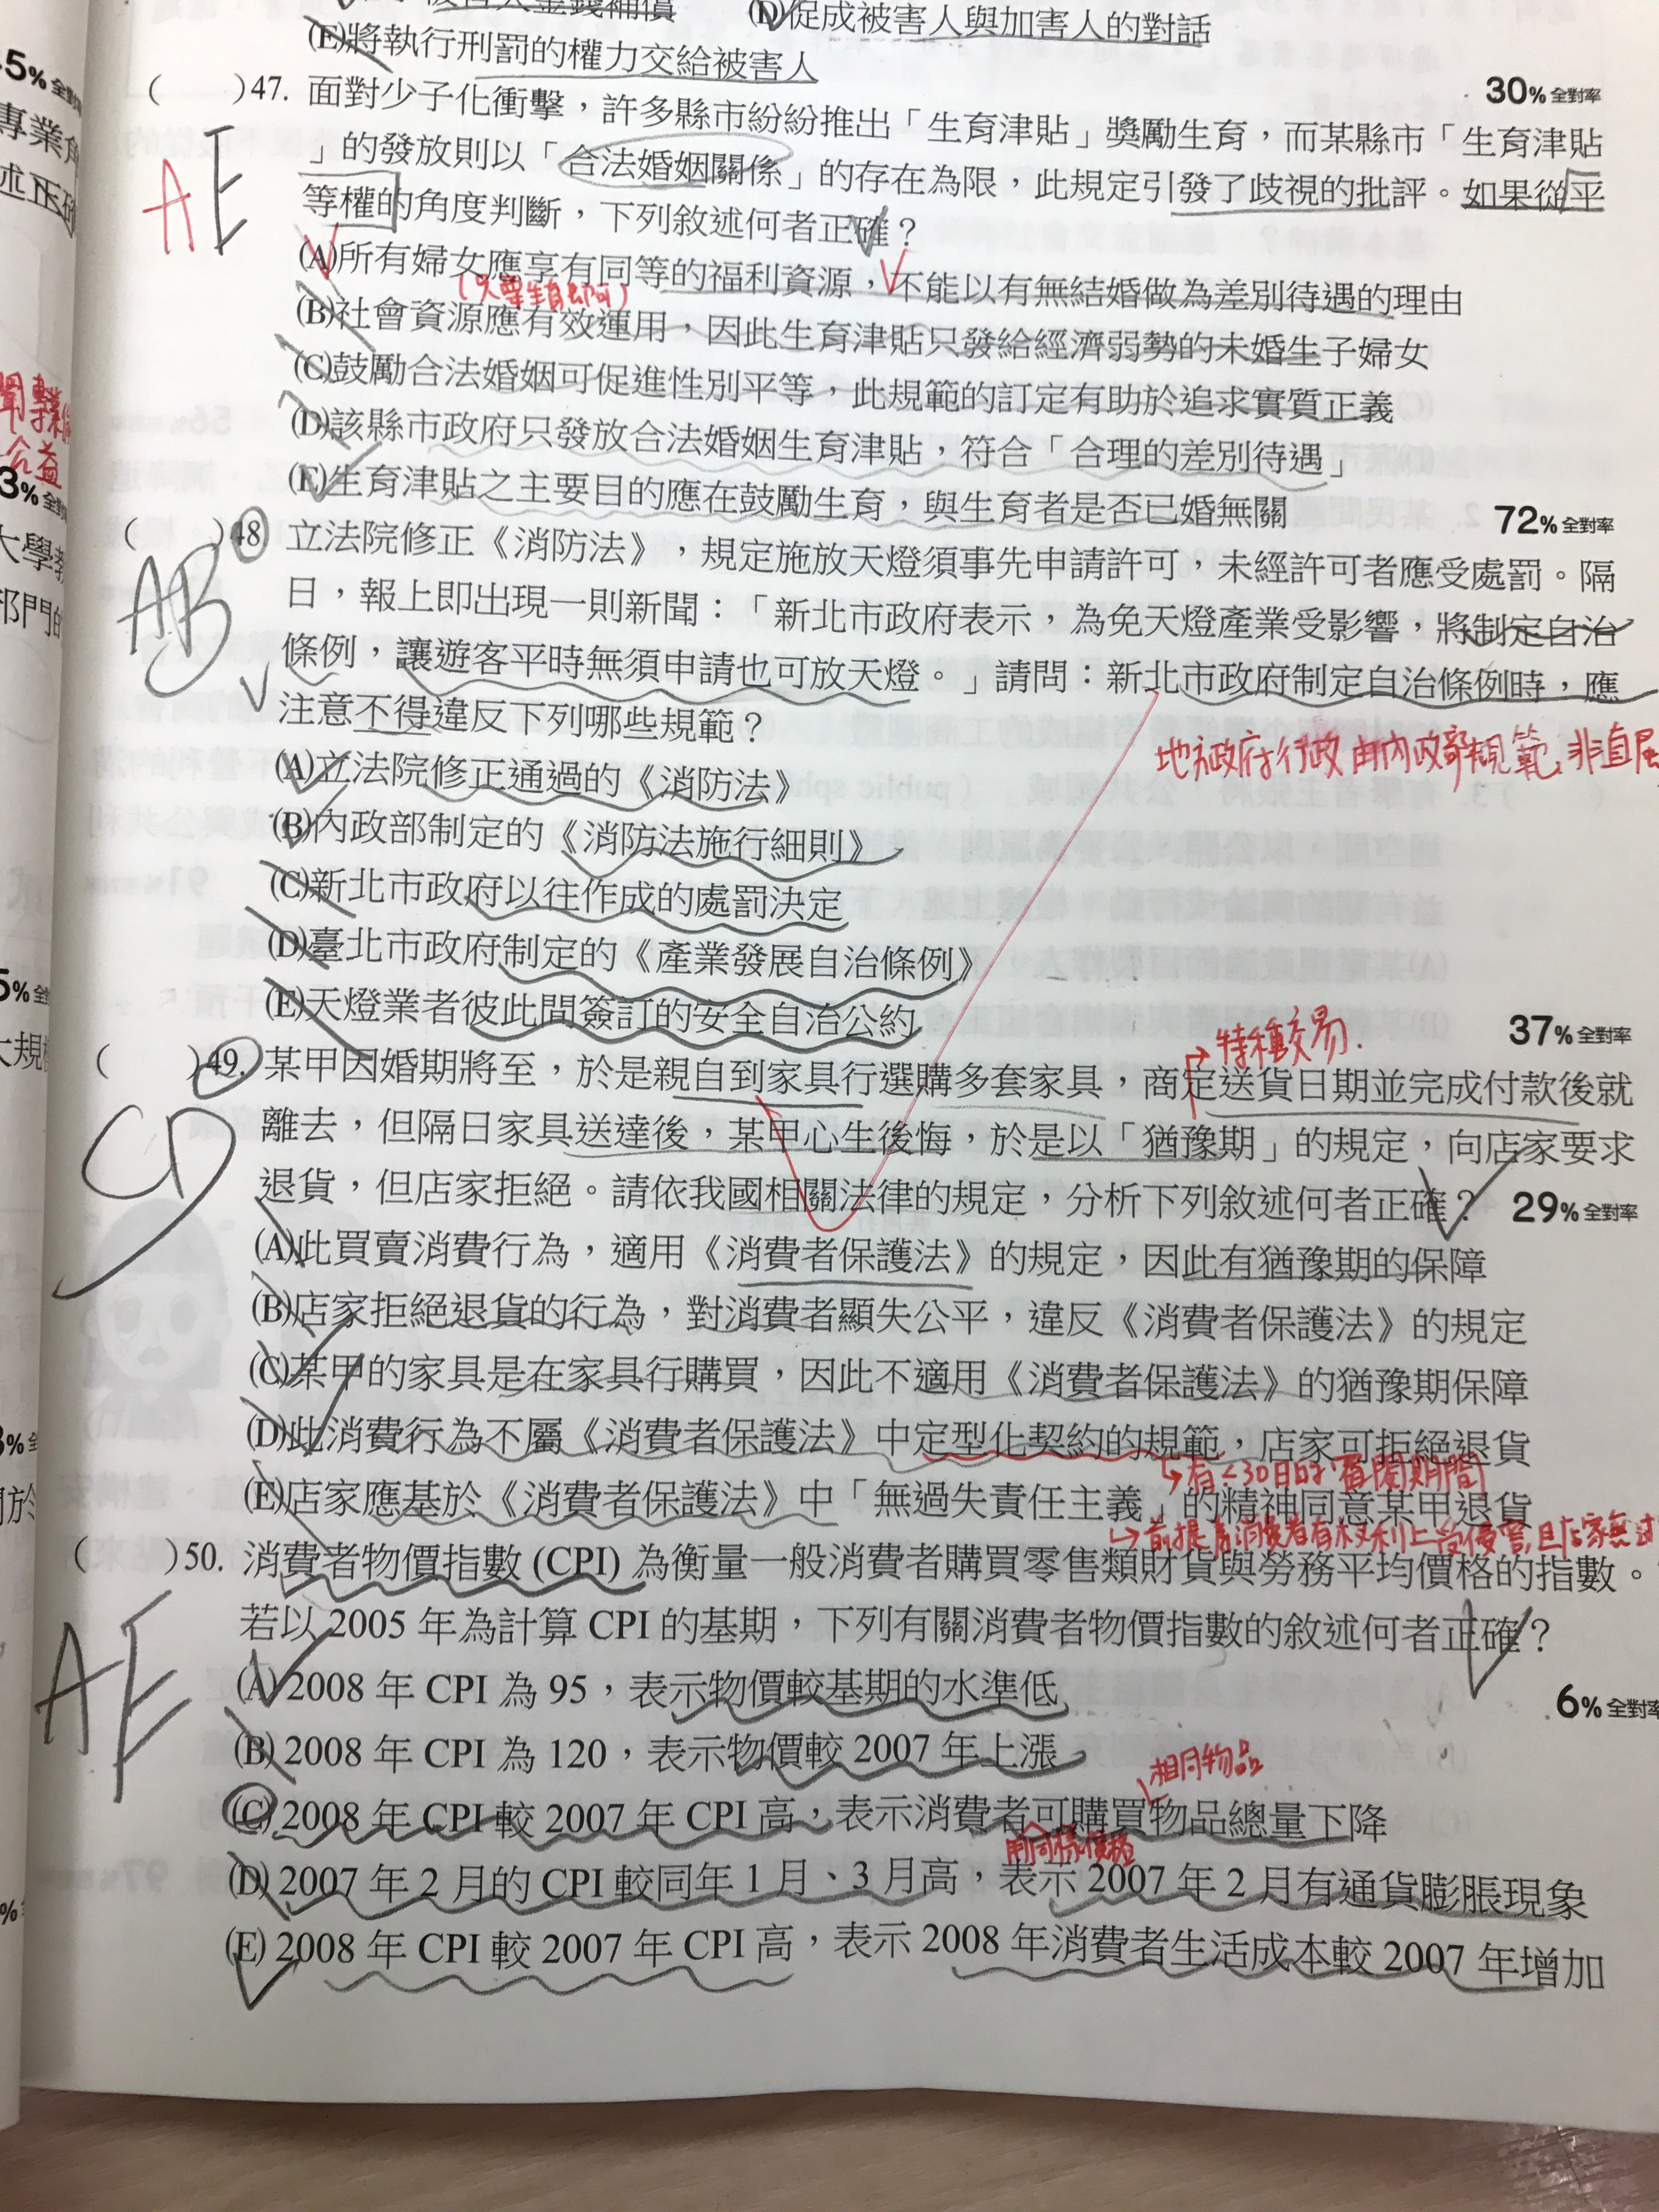 (D)促成被害人與加害人的對話
(E)將執行刑罰的權力交給被害人
30%全對率
( )47. 面對少子化衝擊，許多縣市紛紛推出「生育津貼」獎勵生育，而某縣市「生育津貼
」的發放則以「合法婚姻關係」的存在為限，此規定引發了歧視的批評。如果從平
等權的角度判斷，下列敘述何者正確？
AE
(A)所有婦女應享有同等的福利資源，不能以有無結婚做為差別待遇的理由
(只要生育即可)
(B)社會資源應有效運用，因此生育津貼只發給經濟弱勢的未婚生子婦女
(C)鼓勵合法婚姻可促進性別平等，此規範的訂定有助於追求實質正義
(D)該縣市政府只發放合法婚姻生育津貼，符合「合理的差別待遇」
(E)生育津貼之主要目的應在鼓勵生育，與生育者是否已婚無關
72%全對率
( )48. 立法院修正《消防法》，規定施放天燈須事先申請許可，未經許可者應受處罰。隔
日，報上即出現一則新聞：「新北市政府表示，為免天燈產業受影響，將制定自治
條例，讓遊客平時無須申請也可放天燈。」請問：新北市政府制定自治條例時，應
注意不得違反下列哪些規範？
AB
地方政府行政由內政部規範，非直屬
(A)立法院修正通過的《消防法》
(B)內政部制定的《消防法施行細則》
(C)新北市政府以往作成的處罰決定
(D)臺北市政府制定的《產業發展自治條例》
(E)天燈業者彼此間簽訂的安全自治公約
特種交易.
37%全對率
( )49. 某甲因婚期將至，於是親自到家具行選購多套家具，商定送貨日期並完成付款後就
離去，但隔日家具送達後，某甲心生後悔，於是以「猶豫期」的規定，向店家要求
退貨，但店家拒絕。請依我國相關法律的規定，分析下列敘述何者正確？
29%全對率
CD
(A)此買賣消費行為，適用《消費者保護法》的規定，因此有猶豫期的保障
(B)店家拒絕退貨的行為，對消費者顯失公平，違反《消費者保護法》的規定
(C)某甲的家具是在家具行購買，因此不適用《消費者保護法》的猶豫期保障
(D)此消費行為不屬《消費者保護法》中定型化契約的規範，店家可拒絕退貨
有<30日的審閱期間
(E)店家應基於《消費者保護法》中「無過失責任主義」的精神同意某甲退貨
( )50. 消費者物價指數 (CPI) 為衡量一般消費者購買零售類財貨與勞務平均價格的指數。
若以 2005 年為計算 CPI 的基期，下列有關消費者物價指數的敘述何者正確？
AE
(A) 2008 年 CPI 為 95，表示物價較基期的水準低
6%全對率
(B) 2008 年 CPI 為 120，表示物價較 2007 年上漲
相同物品
(C) 2008 年 CPI 較 2007 年 CPI 高，表示消費者可購買物品總量下降
用同樣價格
(D) 2007 年 2 月的 CPI 較同年 1 月、3 月高，表示 2007 年 2 月有通貨膨脹現象
(E) 2008 年 CPI 較 2007 年 CPI 高，表示 2008 年消費者生活成本較 2007 年增加